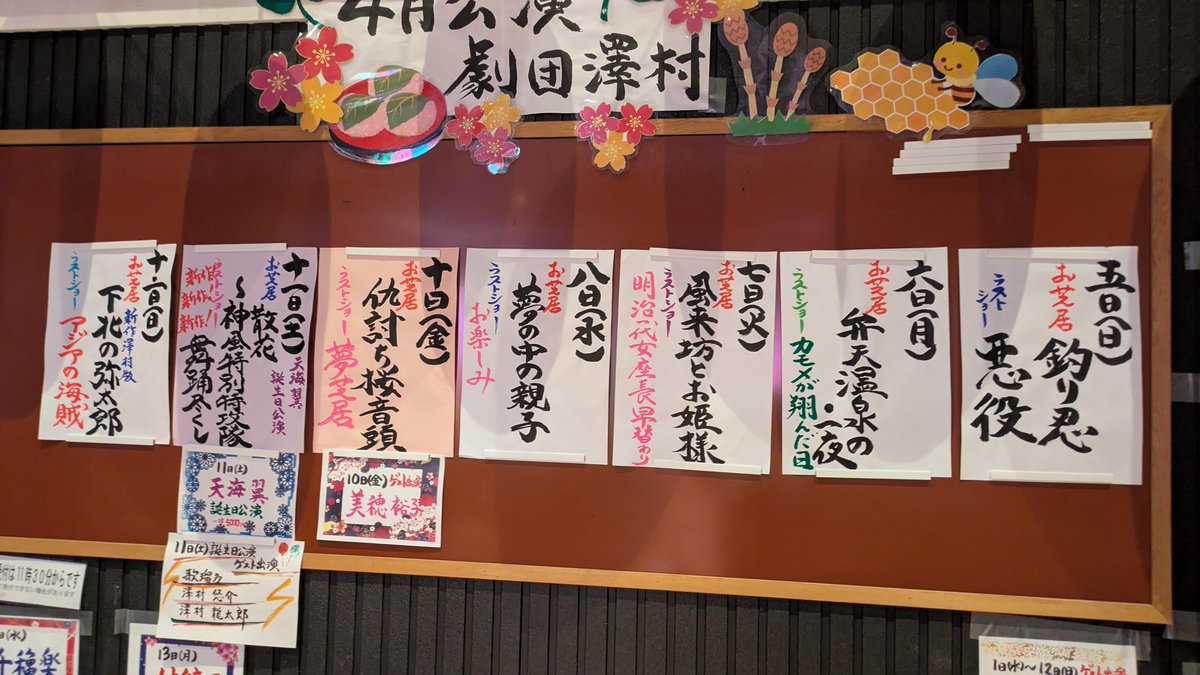 4月公演
劇団澤村
五日(日)
お芝居
釣り忍
ラストショー
悪役
六日(月)
お芝居
弁天温泉の一夜
ラストショー
カモメが翔んだ日
七日(火)
お芝居
風来坊とお姫様
ラストショー
明治一代女座長早替わり
八日(水)
お芝居
夢の中の親子
ラストショー
お楽しみ
十日(金)
お芝居
仇討ち桜音頭
ラストショー
夢芝居
十一日(土)
天海翼
誕生日公演
お芝居
散花
～神風特別特攻隊
ラストショー
舞踊尽くし
新作!
新作!
新作!
十二日(日)
お芝居
新作澤村版
下北の弥太郎
ラストショー
アジアの海賊
10日(金)ゲスト出演
美穂裕
11日(土)
天海翼
誕生日公演
11日(土)誕生日公演
ゲスト出演
歌瑠乃
澤村悠介
澤村龍太郎
受付は11時30分からです
(水)
千穐楽
13日(月)
1日(水)～12日(日)ゲスト出演